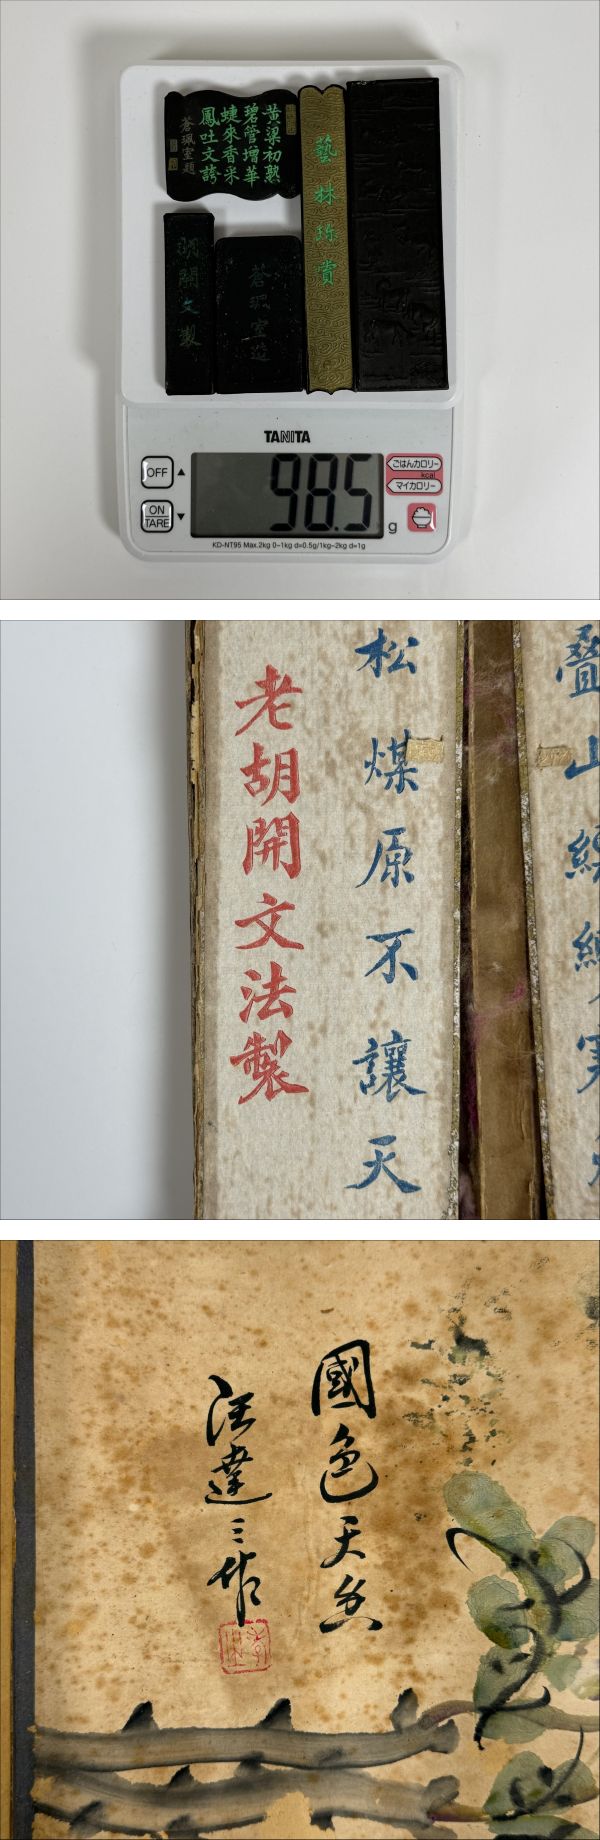 黄粱初熟
碧管增華
蜨來香采
鳳吐文誇
蒼珮室題
藝林珍賞
胡開文製
蒼珮室造
TANITA
OFF
ON
TARE
98.5 g
ごはんカロリー
kcal
マイカロリー
KD-NT95 Max.2kg 0~1kg d=0.5g/1kg~2kg d=1g
疊山
松煤原不讓天
老胡開文法製
國色天香
汪達三作